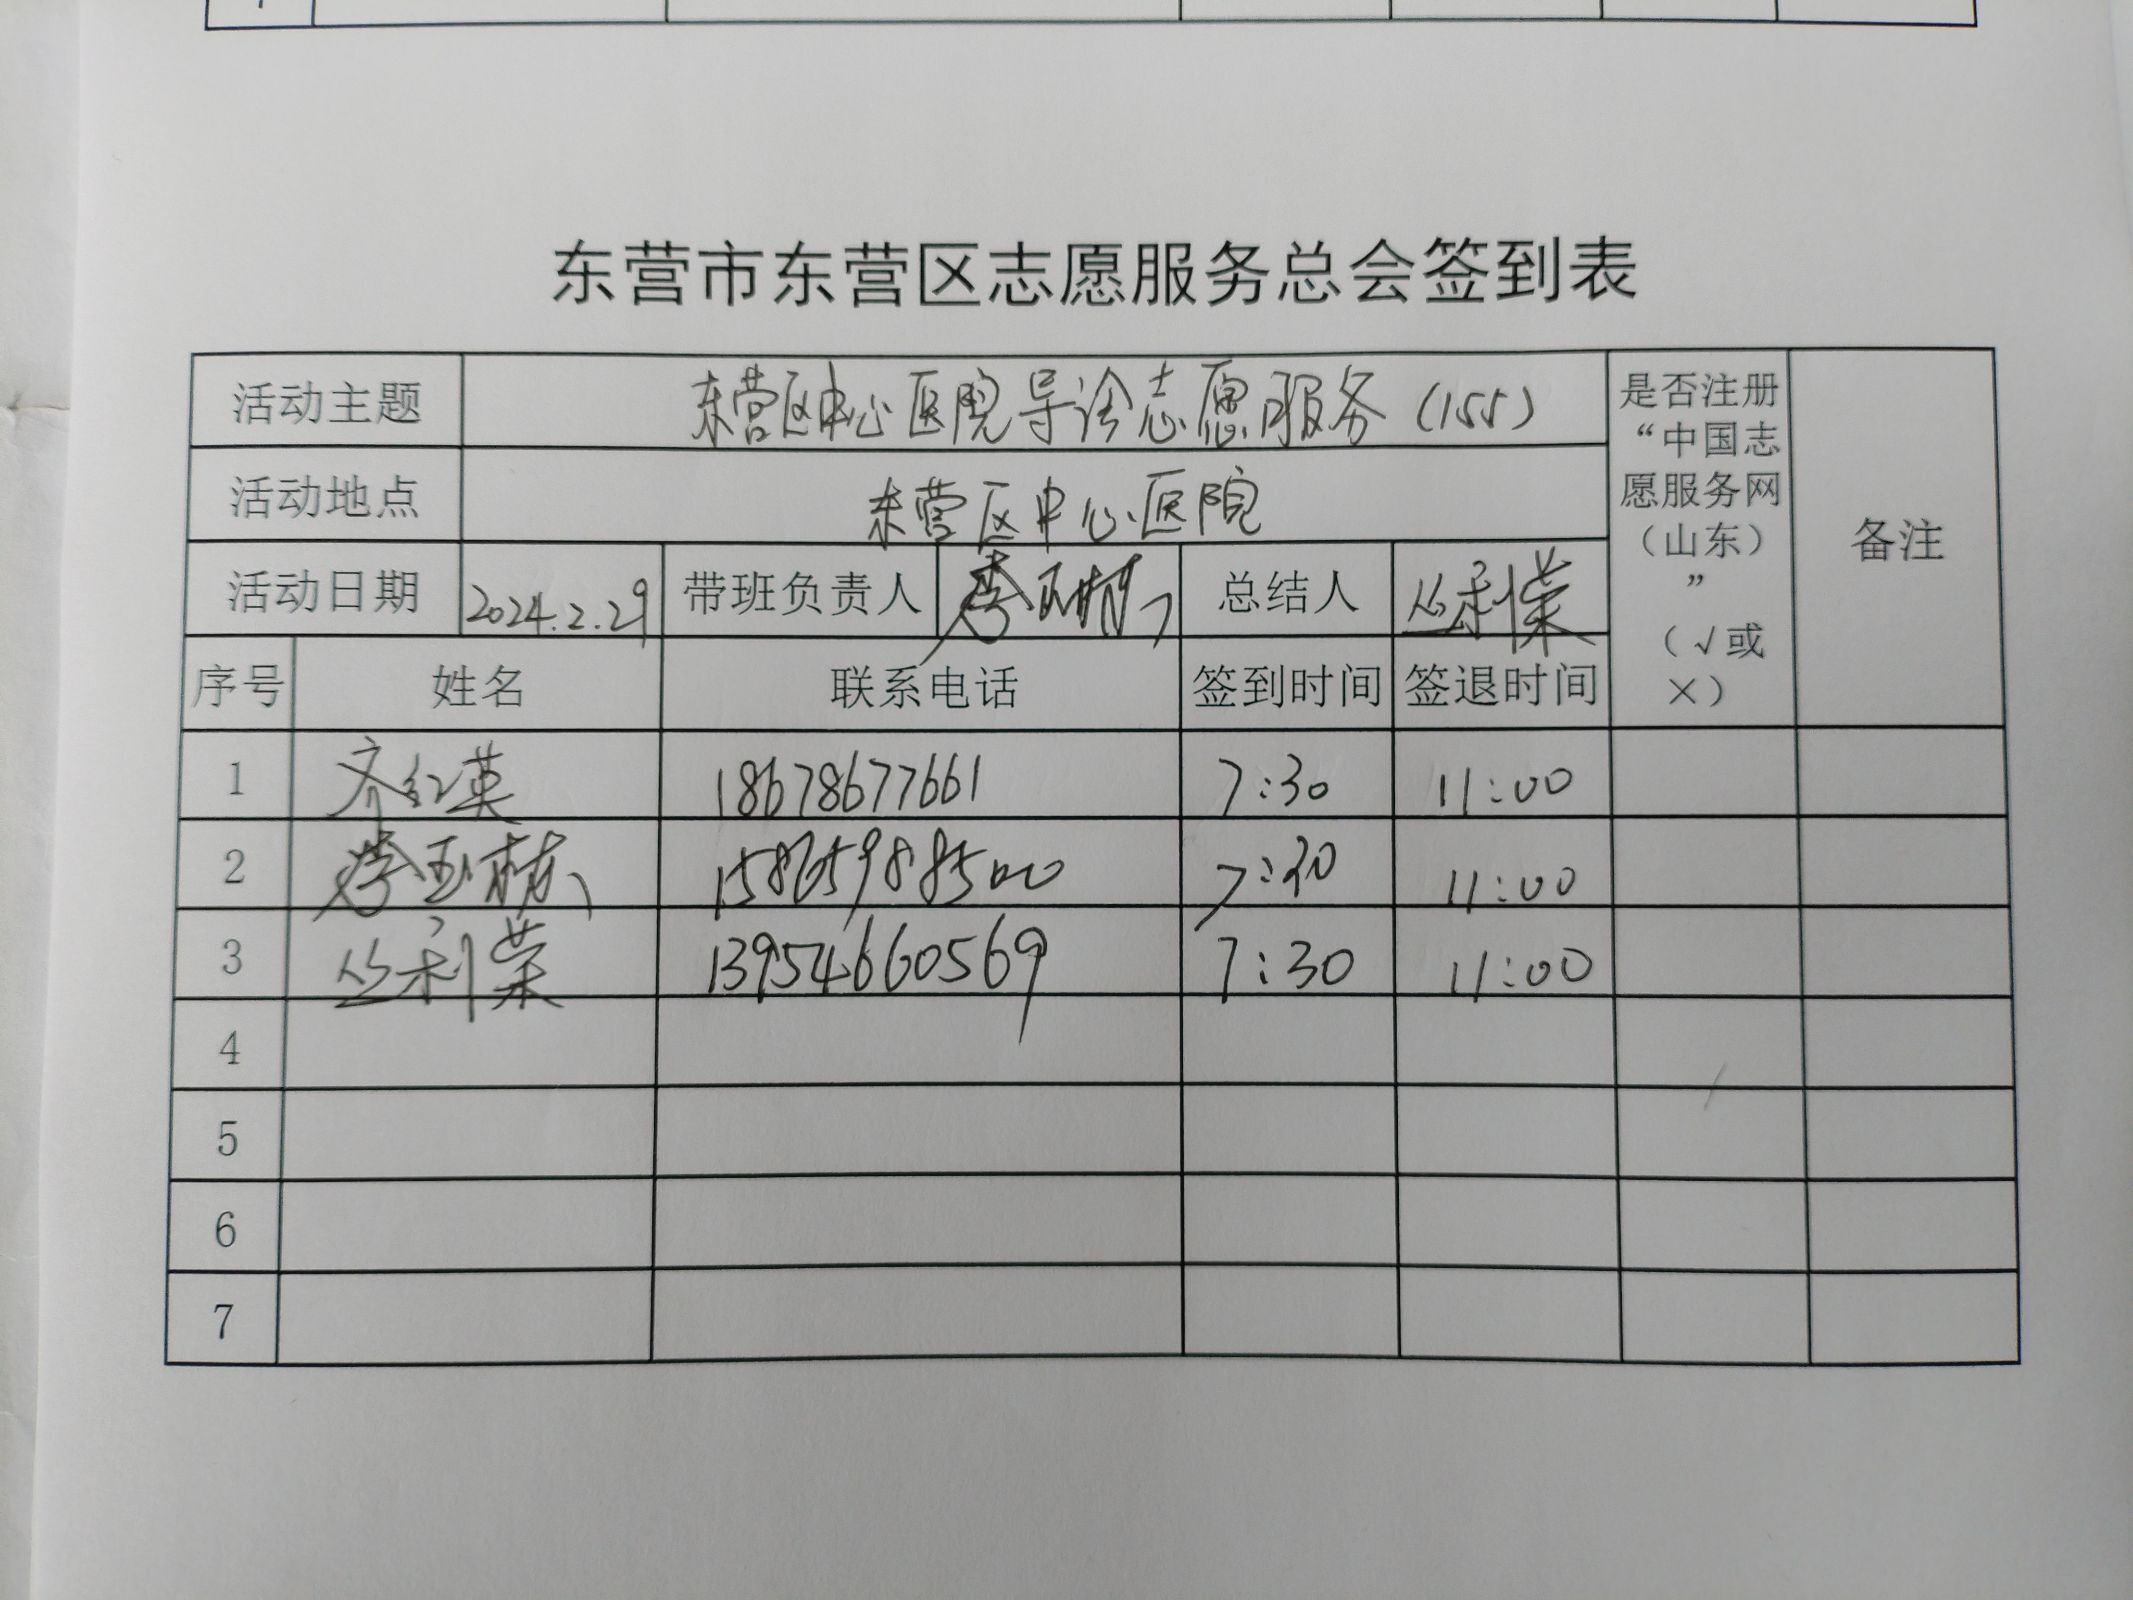 东营市东营区志愿服务总会签到表
活动主题 东营区中心医院导诊志愿服务（155） 是否注册“中国志愿服务网（山东）”（√或×） 备注
活动地点 东营区中心医院
活动日期 2024.2.29 带班负责人 总结人 丛利荣
序号 姓名 联系电话 签到时间 签退时间
1 齐红英 18678677661 7:30 11:00
2 7:30 11:00
3 丛利荣 13954660569 7:30 11:00
4
5
6
7